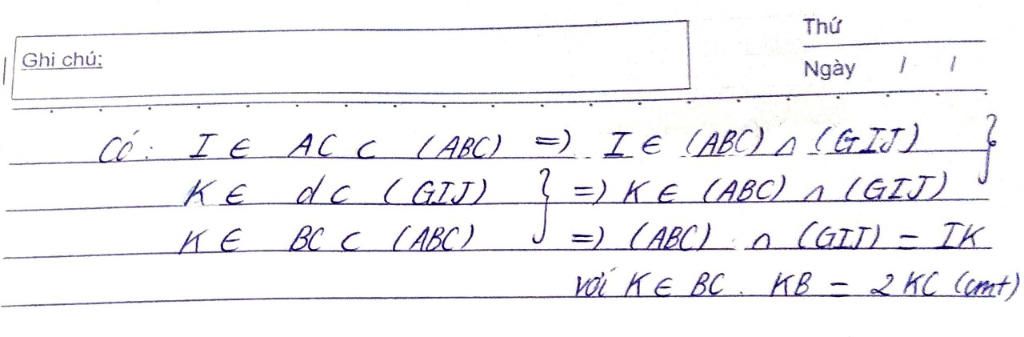 Thứ
Ghi chú:
Ngày / /
Có: I ∈ AC ⊂ (ABC) => I ∈ (ABC) ∩ (GIJ) }
K ∈ d ⊂ (GIJ) } => K ∈ (ABC) ∩ (GIJ)
K ∈ BC ⊂ (ABC) => (ABC) ∩ (GIJ) = IK
với K ∈ BC. KB = 2KC (cmt)